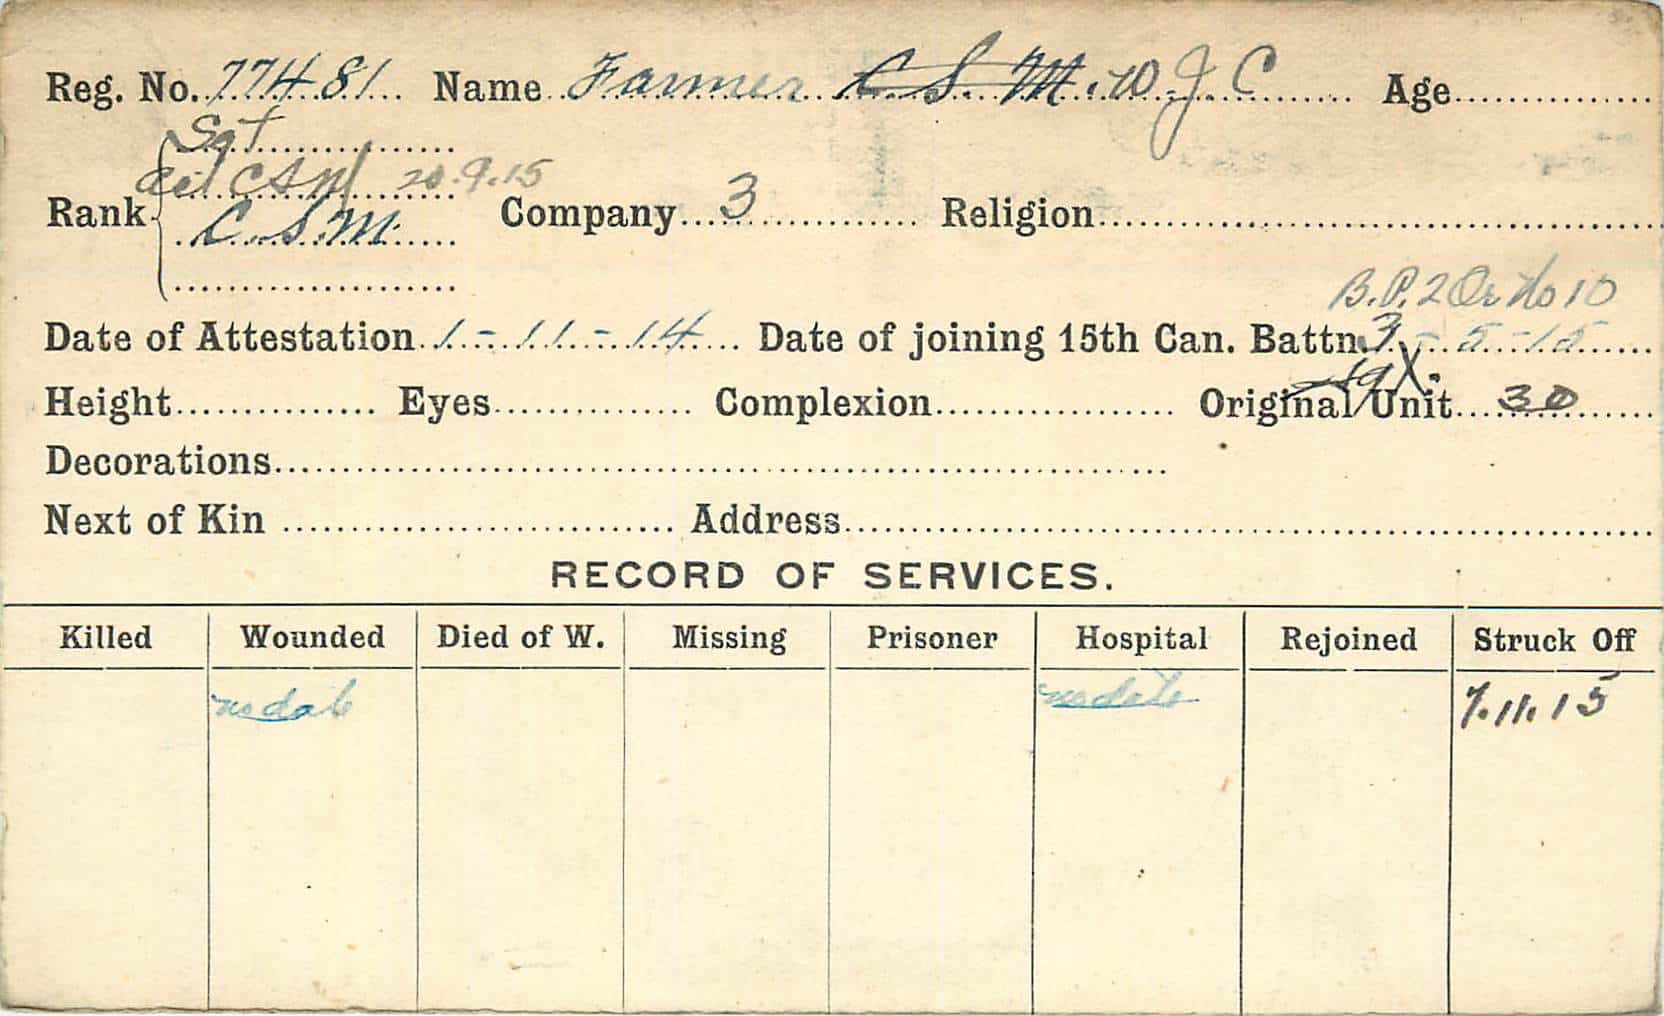 Reg. No. 77481 Name Farmer C S. M. W. J. C Age
Sgt
CSM 20.9.15
Rank C. S. M. Company 3 Religion
B.P. 2 Or No 10
Date of Attestation 1-11-14 Date of joining 15th Can. Battn. 3-5-15
Height Eyes Complexion Original Unit 30
Decorations
Next of Kin Address
RECORD OF SERVICES.
Killed Wounded Died of W. Missing Prisoner Hospital Rejoined Struck Off
no date no date 7.11.15